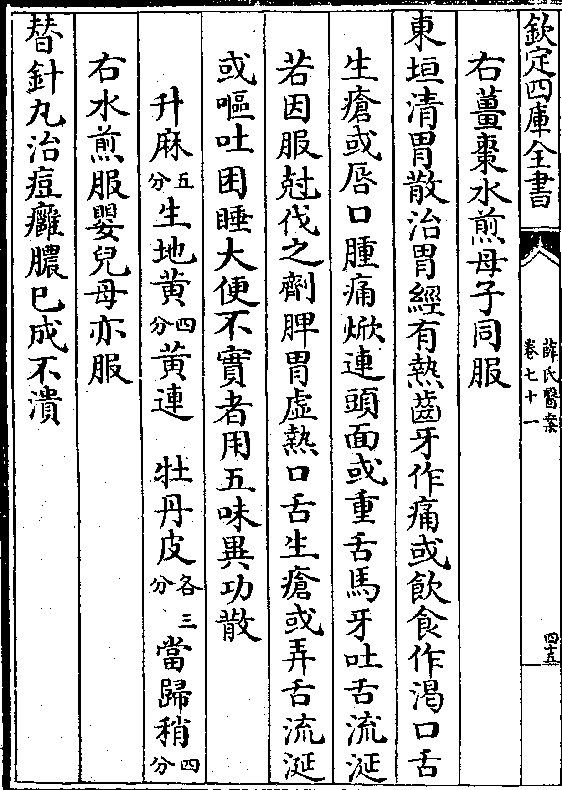 欽定四庫全書
薛氏醫案
卷七十一
四十五
右薑棗水煎母子同服
東垣清胃散治胃經有熱齒牙作痛或飲食作渴口舌
生瘡或唇口腫痛焮連頭面或重舌馬牙吐舌流涎
若因服尅伐之劑脾胃虛熱口舌生瘡或弄舌流涎
或嘔吐困睡大便不實者用五味異功散
升麻五分生地黄四分黄連 牡丹皮各三分當歸稍四分
右水煎服嬰兒母亦服
替針丸治痘癰膿已成不潰